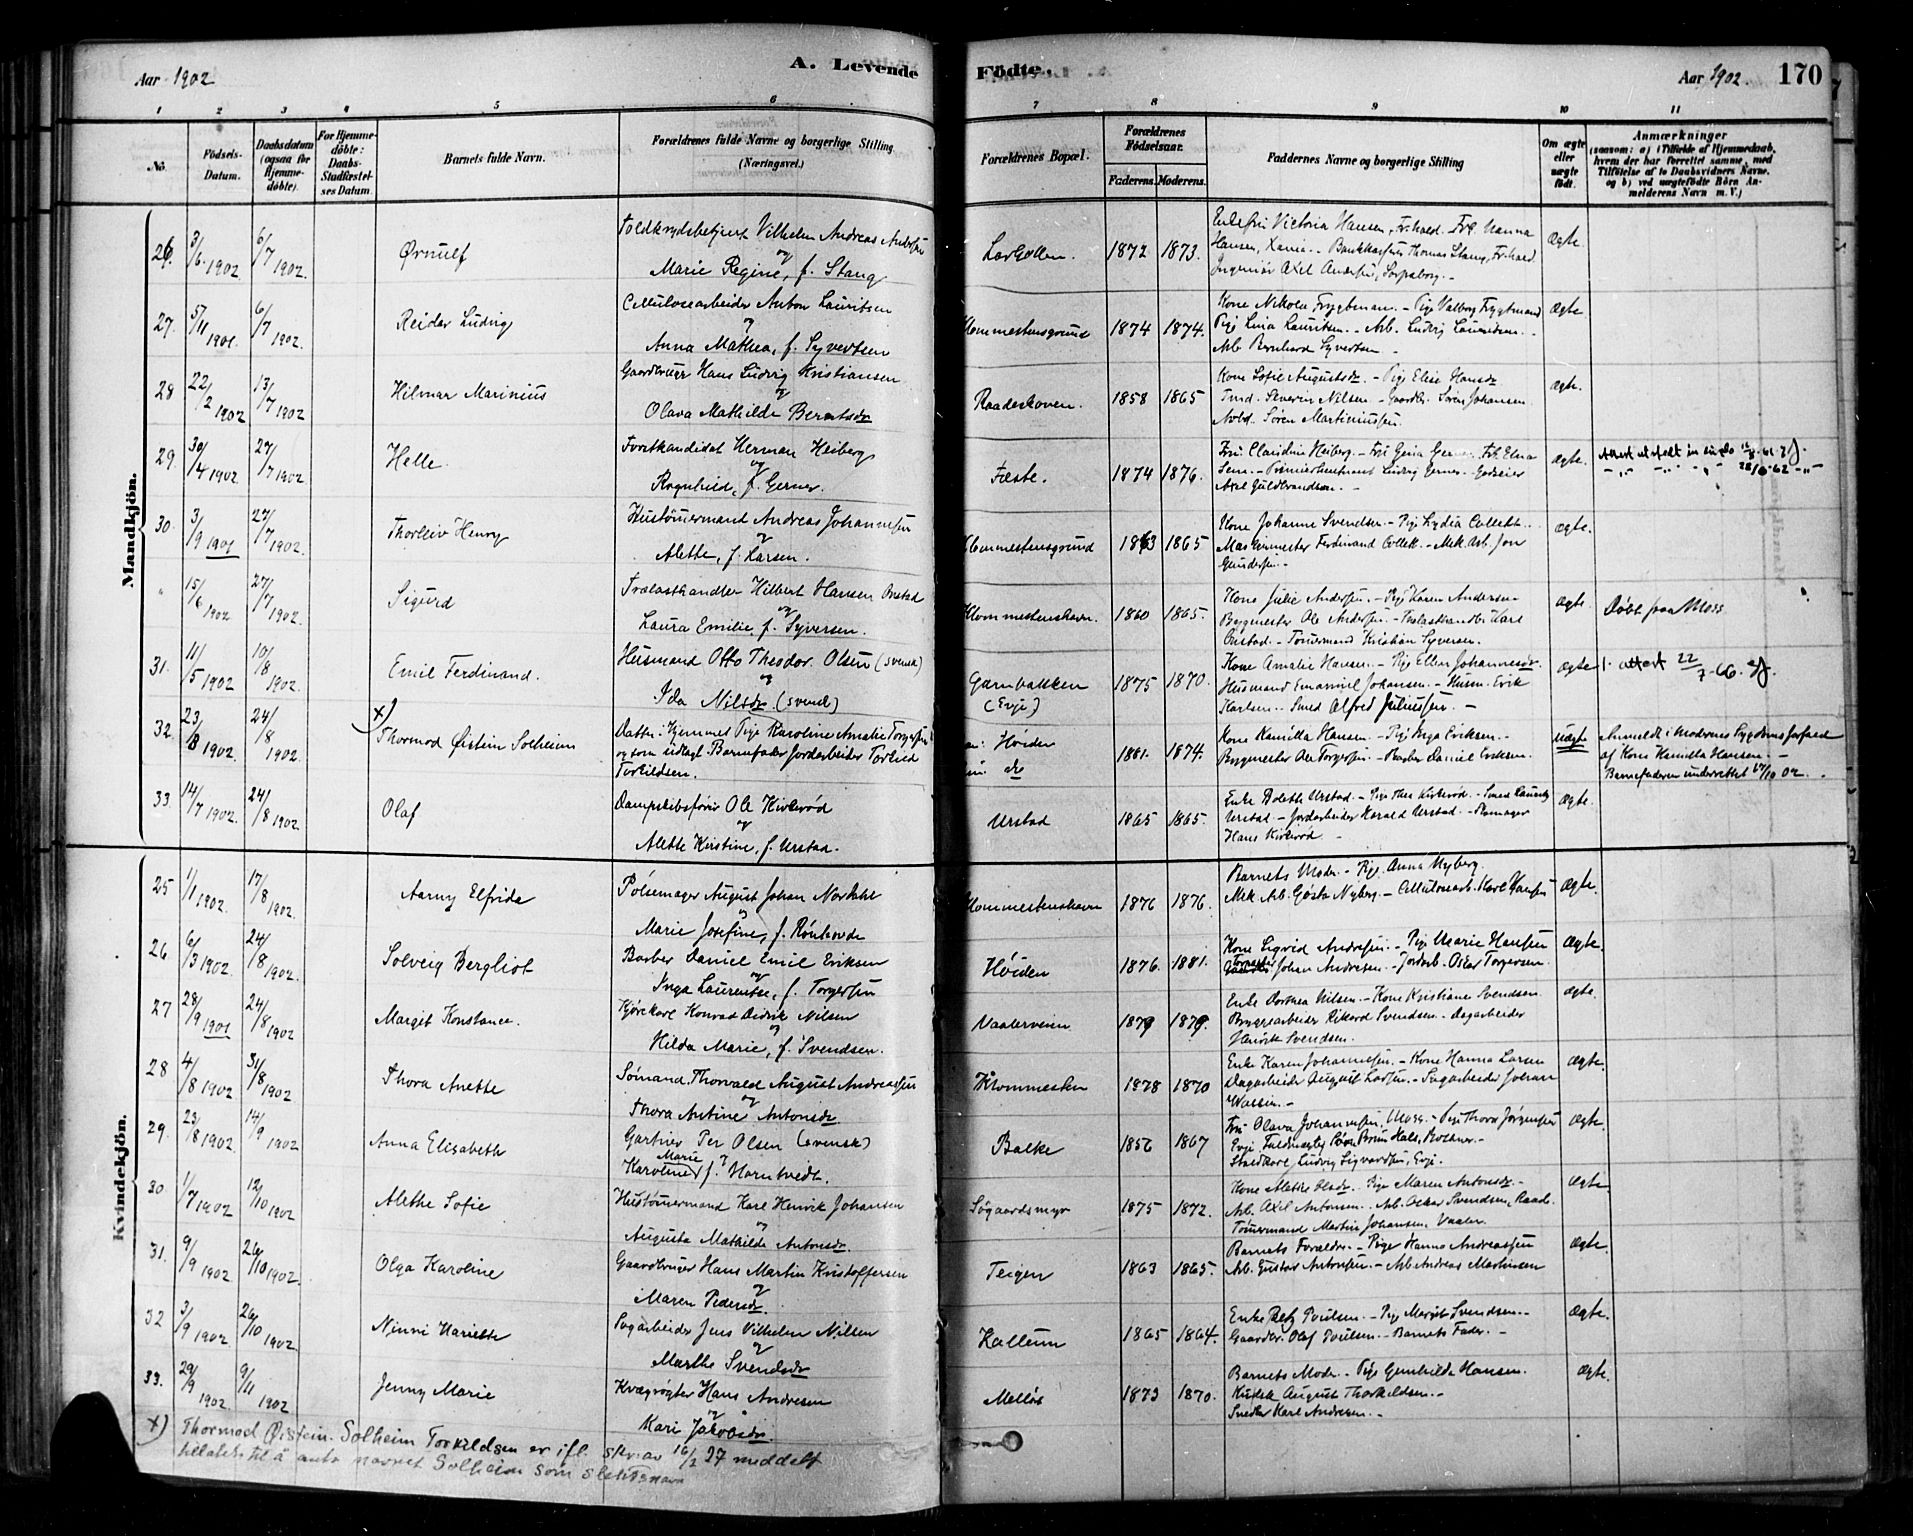 Aar 1902
A. Levende
Födte.
Aar 1902.
170
1 2 3 4 5 6 7 8 9 10 11
No.
Födsels-Datum.
Daabsdatum (ogsaa for Hjemme-döbte).
For Hjemme-döbte: Daabs-Stadfæstel-ses Datum.
Barnets fulde Navn.
Forældrenes fulde Navne og borgerlige Stilling (Næringsvei.)
Forældrenes Bopæl.
Forældrenes Födselsaar.
Faderens. Moderens.
Faddernes Navne og borgerlige Stilling
Om ægte eller uægte födt.
Anmærkninger
(saasom: a) i Tilfælde af Hjemmedaab, hvem der har forrettet samme, med Tilföielse af to Daabsvidners Navne, og b) ved uægtefödte Börn An-melderens Navn m. V.)
Mandkjön.
26. 3/6 1902 6/7 1902. Ørnulf Toldkrydsbetjent Vilhelm Andreas Andersen
og
Marie Regine, f. Stang
1872 1873. Enkefru Victoria Hansen, Fr.hald. Frk. Nanna
Hansen, Xania. Bankkasserer Thomas Stang, Fr.hald.
Ingeniør Axel Andersen, Sarpsborg. Ægte.
27. 5/11 1901. 6/7 1902. Reidar Ludvig Cellulosearbeider Anton Lauritsen
og
Anna Mathea, f. Syvertsen
Kommestensgrund 1874 1874. Kone Nikola Frygtman. - Pige Valborg Frygtmand
Pige Lina Lauritsen. - Arb. Ludvig Lauritsen. -
Arb. Bernhard Syvertsen - Ægte.
28 22/2 1902 13/7 1902 Hilmar Marinius Gaardbruger Hans Ludvig Kristiansen
og
Olava Mathilde Berntsdr
Raadeskoven. 1858 1865 Kone Sofie Augustsdr. - Pige Elise Hansdr
Tmd. Severin Nilsen - Gaardbr. Søren Johansen
Søren Martiniussen. Ægte.
29. 30/4 1902 27/7 1902 Helle. Forstkandidat Herman Heiberg
og
Ragnhild, f. Gerner.
Tæste. 1874 1876. Fru Claudine Heiberg. - Frk. Gina Gerner. Frk. Elna
Sem. - Premierløitnant Ludvig Gerner - Godseier
Axel Guldbrandson. - Ægte.
30. 3/9 1901 27/7 1902. Thorleiv Henry Hustømmermand Andreas Johannesen
og
Alette, f. Larsen.
Kommestensgrund 1863 1865 Kone Johanne Svendsen. - Pige Lydia Collett.
Maskinmester Ferdinand Collett. - Mek. Arb. Jon
Gundersen. - Ægte.
" 15/6 1902 27/7 1902. Sigurd Trælasthandler Hilbert Hansen Orstad
og
Laura Emilie, f. Syversen.
Kommestenshavn. 1860 1865. Kone Julie Andersen. - Pige Karen Andersen
Bygmester Ole Andersen. - Trælasthandler Karl
Orstad - Tømmermand Kristian Syversen. Ægte Døbt fra Moss.
31. 11/5 1902 10/8 1902. Emil Ferdinand. Husmand Otto Theodor Olsen (svensk)
og
Ida Nilsdr (svensk)
Garnbakken
(Evje) 1875 1870. Kone Amalie Hansen. - Pige Ellen Johannesdr.
Husmand Emanuel Johansen. - Husm. Erik
Karlsen. - Smed Alfred Juliussen. - Ægte. 1 attest 22/7-66.
32. 23/8 1902 24/8 1902 x) Thormod Øistein Solheim Datter. Hjemmev. Pige Karoline Amalie Torgersen
og som udlagt Barnefader Jordarbeider Torkild
Torkildsen.
Høiden
do 1881. 1874. Kone Kamilla Hansen. - Pige Inga Eriksen. -
Bygmester Ole Torgersen - Barber Daniel Eriksen. Uægte Anmeldt i Moderens Sygdomsforfald
af Kone Kamilla Hansen. -
Barnefaderen underrettet 17/10 02.
33. 14/7 1902. 24/8 1902. Olaf Dampskibsfører Ole Kirkerød
og
Alette Kirstine, f. Urstad.
Urstad 1865 1865. Enke Dolette Urstad. - Pige Thea Kirkerød. - Smed Lauritz
Urstad - Jordarbeider Harald Urstad -
Hans Kirkerød - Ægte.
Kvindekjön.
25 1/1 1902. 17/8 1902. Aarny Elfrida Pølsemager August Johan Nordahl
og
Marie Josefine, f. Rønhovde
Kommestenshavn 1876 1876. Barnets Moder. - Pige Anna Nyberg.
Mek. Arb. Gøsta Nyberg. - Cellulosearb. Karl Hansen Ægte.
26. 6/3 1902. 24/8 1902. Solveig Bergliot Barber Daniel Emil Eriksen
og
Inga Laurentse, f. Torgersen
Høiden 1876. 1881. Kone Sigrid Andresen. - Pige Marie Hansen
Johan Andresen. - Jordarb. Oskar Torgersen. Ægte.
27 28/9 1901 24/8 1902 Margit Konstance. Kjørekarl Konrad Didrik Nilsen
og
Hilda Marie, f. Svendsen.
Vaalerveien 1879 1879. Enke Dorthea Nilsen. - Kone Kristiane Svendsen.
Bryggearbeider Rikard Svendsen. - Dagarbeider
Henrik Svendsen. Ægte.
28 4/8 1902 31/8 1902 Thora Anette Sømand Thorvald August Andreassen
og
Thora Antine Antonsdr.
Kommesten 1878 1870 Enke Karen Johannesen. - Kone Hanna Larsen
Dagarbeider August Larsen. - Sagarbeider Johan
Wassin. - Ægte.
29. 23/8 1902. 14/9 1902 Anna Elisabeth Gartner Per Olsen (svensk)
Marie og
Karoline f. Harntvedt.
Balke 1856 1867 Fru Olava Johannesen, Moss. - Pige Thora Jørgensen
Evje. Fuldmægtig Bruun Hals, Rosnæs. -
Staldkarl Ludvig Sigvardsen, Evje. Ægte.
30 1/7 1902 12/10 1902 Alethe Sofie Hustømmermand Karl Henrik Johansen
og
Augusta Mathilde Antonsdr.
Søgaardsmyr 1875 1872. Kone Alethe Olsdr. Pige Maren Antonsdr. -
Arb. Axel Antonsen. - Arb. Oskar Svendsen, Raade.
Tømmermand Martin Johansen, Vaaler. Ægte.
31. 9/9 1902 26/10 1902. Olga Karoline Gaardbruger Hans Martin Kristoffersen
og
Maren Pedersdr.
Teigen 1863 1865. Barnets Forældre. - Pige Hanna Andreassen
Arb. Gustav Antonsen. - Arb. Andreas Martinsen Ægte.
32 3/9 1902. 26/10 1902. Ninni Hariette Sagarbeider Jens Vilhelm Nilsen
og
Marthe Svendsdr
Kallum 1865 1864. Enke Betzy Poulsen. - Pige Margit Svendsen. -
Gaardbr. Olaf Poulsen. - Barnets Fader. - Ægte.
33. 29/9 1902. 9/11 1902 Jenny Marie Kvægrøgter Hans Andresen
og
Kari Jakobsdr.
Melløs 1873 1870. Barnets Moder. - Pige Gunhilde Hansen.
Kudsk August Thorkildsen. -
Snedker Karl Andresen. - Ægte.
x) Thormod Øistein Solheim Torkildsen er ifl. skr. av 16/2 27 meddelt
tillatelse til å anta navnet Solheim som slektsnavn